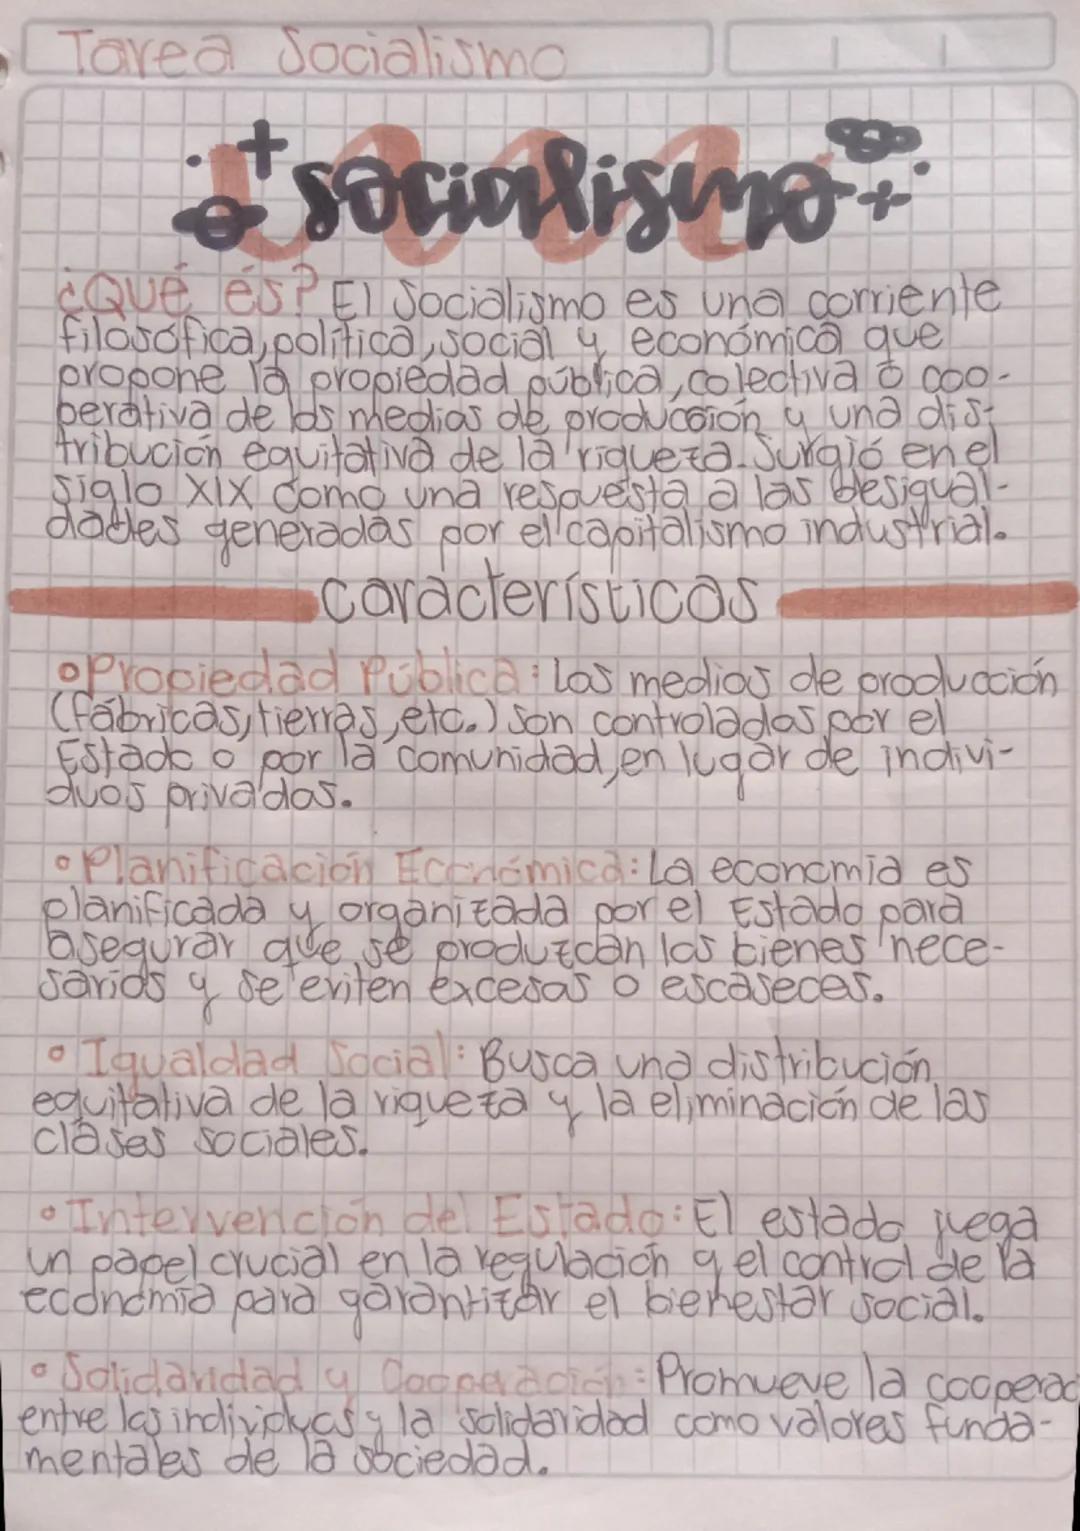 Tarea Socialismo
socialismo
¿Qué és? El Socialismo es una corriente
filosófica, política, social y económica que
propone la propiedad pública, colectiva o coo-
perativa de los medios de producción y una dis-
tribución equitativa de la riqueza. Surgió en el
siglo XIX como una respuesta a las desigual-
dades generadas por el capitalismo industrial.
características
• Propiedad Pública: Los medios de producción
(fábricas, tierras, etc.) son controlados por el
Estado o por la comunidad, en lugar de indivi-
duos privados.
• Planificación Económica: La economía es
planificada y organizada por el Estado para
asegurar que se produzcan los bienes nece-
sarios y se eviten excesos o escaseces.
• Igualdad Social: Busca una distribución
equitativa de la riqueza y la eliminación de las
clases sociales.
• Intervención del Estado: El estado juega
un papel crucial en la regulación y el control de la
economía para garantizar el bienestar social.
• Solidaridad y Cooperación: Promueve la cooperac
entre los individuos y la solidaridad como valores funda-
mentales de la sociedad.